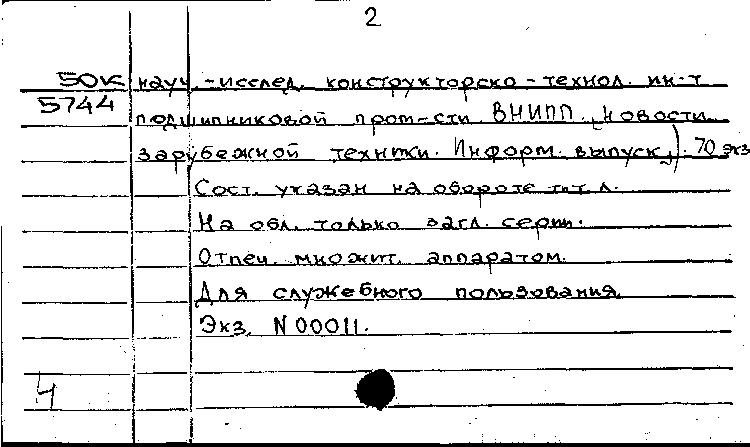 2
50к науч.-исслед. конструкторско-технол. ин-т
5744 подшипниковой пром-сти ВНИПП. „Новости
зарубежной техники. Информ. выпуск“). 70 экз
Сост. указан на обороте тит. л.
На обл. только загл. серии.
Отпеч. множит. аппаратом.
Для служебного пользования
Экз. N 00011.
4